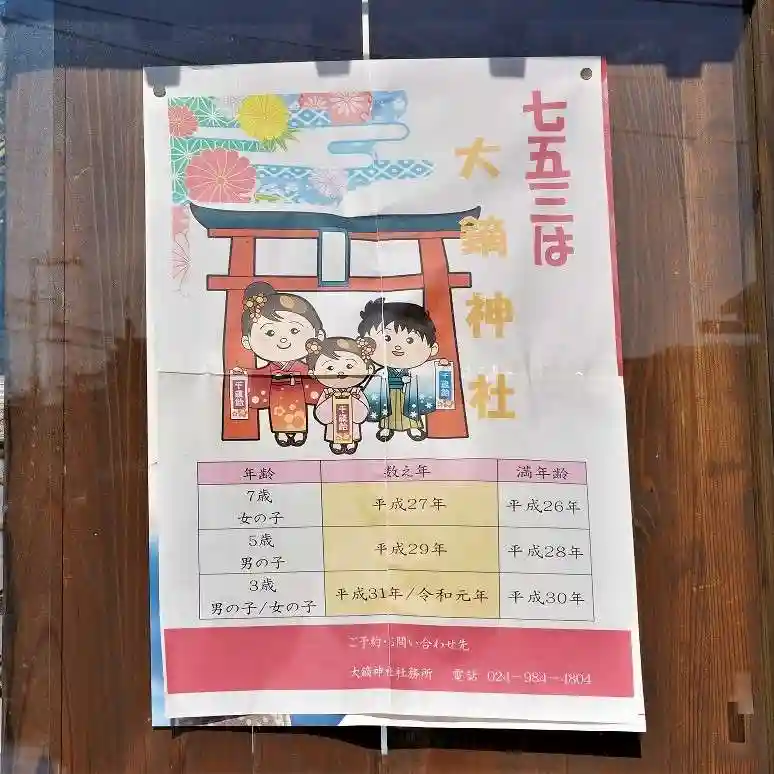 七五三は
大鏑神社
千歳飴
千歳飴
千歳飴
年齢 数え年 満年齢
7歳
女の子
平成27年 平成26年
5歳
男の子
平成29年 平成28年
3歳
男の子/女の子
平成31年/令和元年 平成30年
ご予約・お問い合わせ先
大鏑神社社務所 電話 024-984-4804